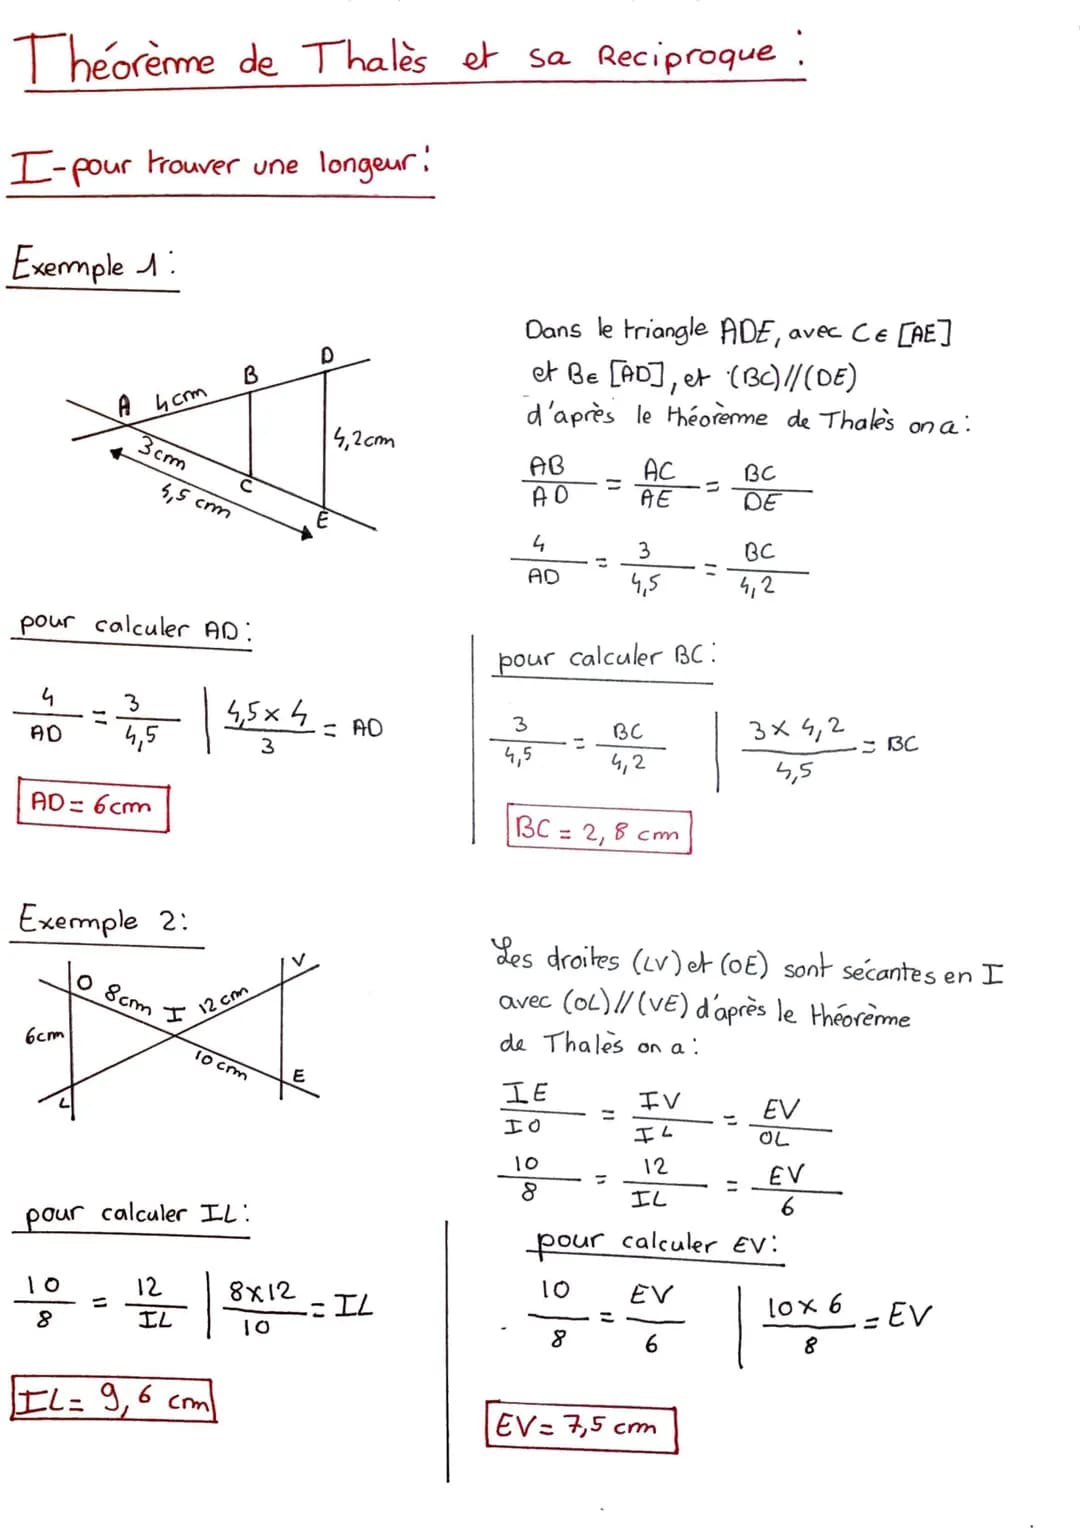 Théorème de Thalès et sa Reciproque :
I-pour trouver une longeur :
Exemple 1 :
Dans le triangle ADE, avec C∈ [AE]
et B∈ [AD], et (BC)//(DE)
d'après le théorème de Thalès on a :
A 4cm B D
3cm
4,5 cm
C
E
4,2cm
AB/AD = AC/AE = BC/DE
4/AD = 3/4,5 = BC/4,2
pour calculer AD :
4/AD = 3/4,5 | 4,5 × 4/3 = AD
AD = 6cm
pour calculer BC :
3/4,5 = BC/4,2 | 3 × 4,2/4,5 = BC
BC = 2,8 cm
Exemple 2 :
O 8cm I 12 cm V
6cm
10 cm
L
E
Les droites (LV) et (OE) sont sécantes en I
avec (OL)//(VE) d'après le théorème
de Thalès on a :
IE/IO = IV/IL = EV/OL
10/8 = 12/IL = EV/6
pour calculer IL :
10/8 = 12/IL | 8×12/10 = IL
IL = 9,6 cm
pour calculer EV :
10/8 = EV/6 | 10× 6/8 = EV
EV = 7,5 cm